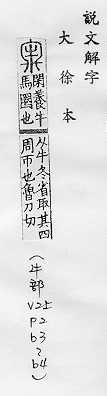 說文解字
大徐本
牢
閑養牛
馬圈也
从牛冬省取其四
周帀也魯刀切
(牛部
V2上
P2
b3~
b4)